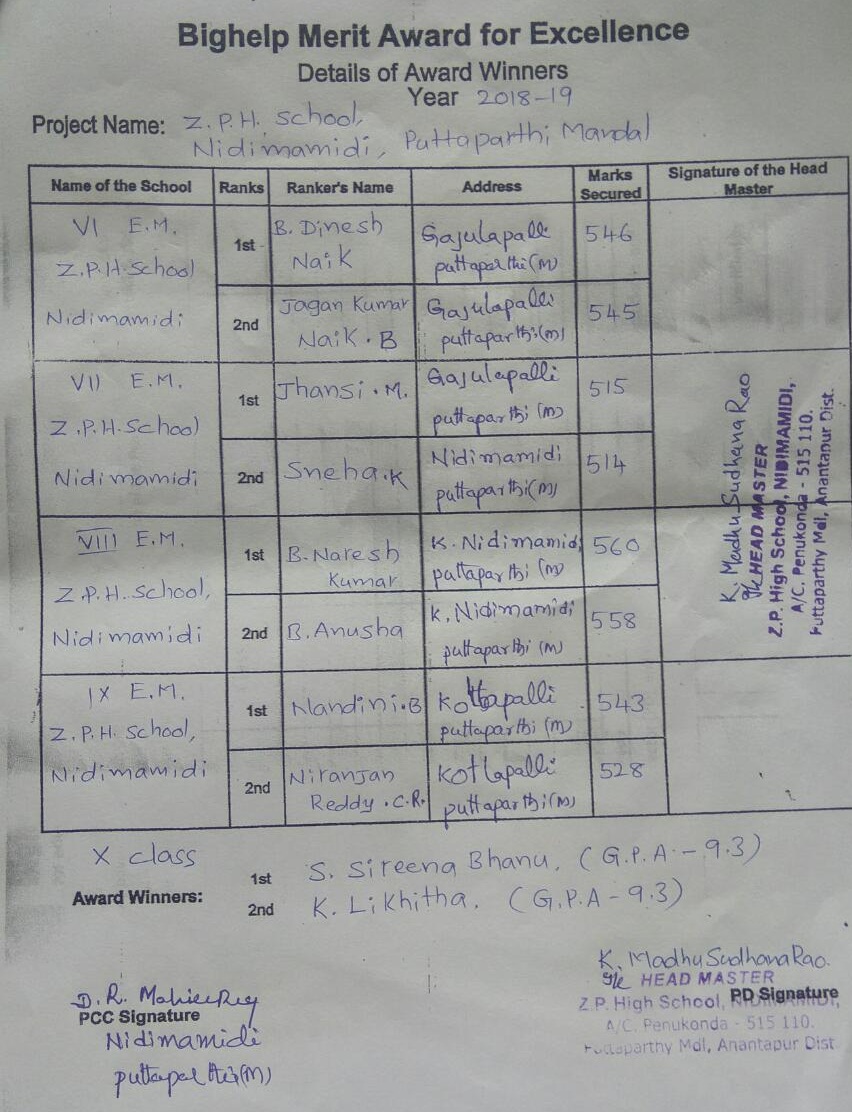 Bighelp Merit Award for Excellence
Details of Award Winners
Year 2018-19
Project Name: Z.P.H. School,
Nidimamidi, Puttaparthi Mandal
Name of the School Ranks Ranker's Name Address Marks Secured Signature of the Head Master
VI E.M.
Z.P.H. School
Nidimamidi
1st B. Dinesh
Naik
Gajulapalli
puttaparthi(M)
546
2nd Jagan Kumar
Naik. B
Gajulapalli
puttaparthi(M)
545
VII E.M.
Z.P.H. School
Nidimamidi
1st Jhansi. M.
Gajulapalli
puttaparthi (M)
515
2nd Sneha.K
Nidimamidi
puttaparthi(M)
514
VIII E.M.
Z.P.H. School,
Nidimamidi
1st B. Naresh
Kumar
K. Nidimamidi
puttaparthi (M)
560
2nd B. Anusha
K. Nidimamidi
puttaparthi (M)
558
IX E.M.
Z.P.H. School,
Nidimamidi
1st Nandini.B
Kottapalli
puttaparthi (M)
543
2nd Niranjan
Reddy.C.R.
Kotlapalli
puttaparthi(M)
528
K. Madhu Sudhana Rao
HEAD MASTER
Z.P. High School, NIDIMAMIDI,
A/C. Penukonda - 515 110.
Puttaparthy Mdl, Anantapur Dist.
X class
Award Winners:
1st S. Sireena Bhanu, (G.P.A - 9.3)
2nd K. Likhitha. (G.P.A - 9.3)
D. R.
PCC Signature
Nidimamidi
puttaparthi(M)
K. Madhu Sudhana Rao.
HEAD MASTER
PD Signature
Z.P. High School, NIDIMAMIDI,
A/C. Penukonda - 515 110.
Puttaparthy Mdl, Anantapur Dist